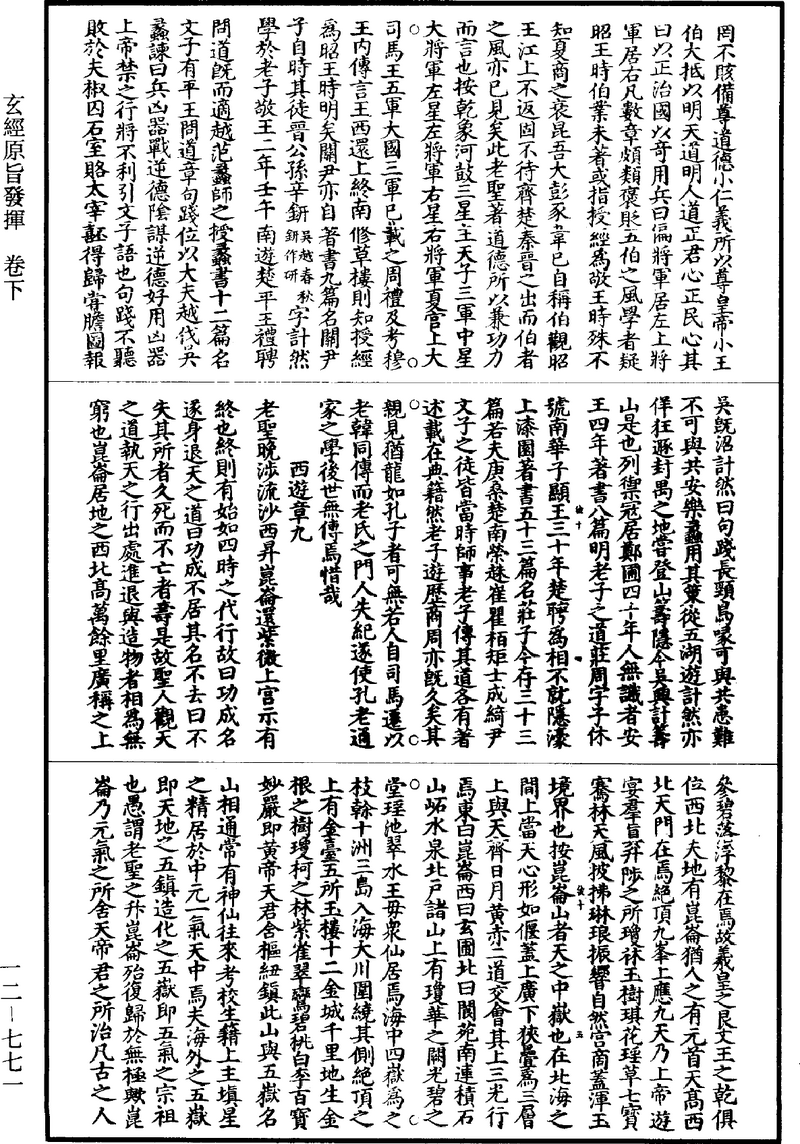 玄經原旨發揮 卷下
罔不賅備尊道德小仁義所以尊皇帝小王
伯大抵以明天道明人道正君心正民心其
曰以正治國以奇用兵曰偏將軍居左上將
軍居右凡數章頗類褒貶五伯之風學者疑
昭王時伯業未著或指授經爲敬王時殊不
知夏商之衰昆吾大彭豕韋已自稱伯觀昭
王江上不返固不待齊楚秦晉之出而伯者
之風亦已見矣此老聖著道德所以兼功力
而言也按乾象河鼓三星主天子三軍中星
大將軍左星左將軍右星右將軍夏官上大
司馬王五軍大國三軍已載之周禮及考穆
王内傳言王西還上終南修草樓則知授經
爲昭王時明矣關尹亦自著書九篇名關尹
子自時其徒晉公孫辛鈃吳越春秋鈃作研字計然
學於老子敬王二年壬午南遊楚平王禮聘
問道既而適越范蠡師之授蠡書十二篇名
文子有平王問道章句踐位以大夫越伐吳
蠡諫曰兵凶器戰逆德陰謀逆德好用凶器
上帝禁之行將不利引文子語也句踐不聽
敗於夫椒囚石室賂太宰嚭得歸嘗膽圖報
吳既沼計然曰句踐長頸鳥喙可與共患難
不可與共安樂蠡用其策從五湖遊計然亦
佯狂遯封禺之地嘗登山籌隱今吳興計籌
山是也列禦寇居鄭圃四十年人無識者安
王四年著書八篇明老子之道莊周字子休
號南華子顯王三十年楚聘爲相不就隱濠
上漆園著書五十三篇名莊子今存三十三
篇若夫庚桑楚南榮趎崔瞿栢矩士成綺尹
文子之徒皆當時師事老子傳其道各有著
述載在典籍然老子遊歷商周亦既久矣其
親見猶龍如孔子者可無若人自司馬遷以
老韓同傳而老氏之門人失紀遂使孔老通
家之學後世無傳焉惜哉
西遊章九
老聖晚涉流沙西昇崑崙還紫微上宫示有
終也終則有始如四時之代行故曰功成名
遂身退天之道曰功成不居其名不去曰不
失其所者久死而不亡者壽是故聖人觀天
之道執天之行出處進退與造物者相爲無
窮也崑崙居地之西北高萬餘里廣稱之上
參碧落浮黎在焉故羲皇之艮文王之乾俱
位西北夫地有崑崙猶人之有元首天高西
北天門在焉絶頂九峯上應九天乃上帝遊
宴羣真昇陟之所瓊林玉樹琪花瑶草七寶
騫林天風披拂琳琅振響自然宫商蓋渾玉
境界也按崑崙山者天之中嶽也在北海之
間上當天心形如偃蓋上廣下狹疊爲三層
上與天齊日月黄赤二道交會其上三光行
焉東曰崑崙西曰玄圃北曰閬苑南連積石
山㟁水泉北戸諸山上有瓊華之闕光碧之
堂瑶池翠水王母衆仙居焉海中四嶽爲之
枝榦十洲三島入海大川圍繞其側絶頂之
上有金臺五所玉樓十二金城千里地生金
根之樹瓊柯之林紫雀翠鸞碧桃白李百寶
妙嚴即黄帝天君舍樞紐鎮此山與五嶽名
山相通常有神仙往來考校生籍上主塡星
之精居於中元一氣天中焉夫海外之五嶽
即天地之五鎮造化之五嶽即五氣之宗祖
也愚謂老聖之升崑崙殆復歸於無極歟崑
崙乃元氣之所舍天帝君之所治凡古之人
一二—七七一